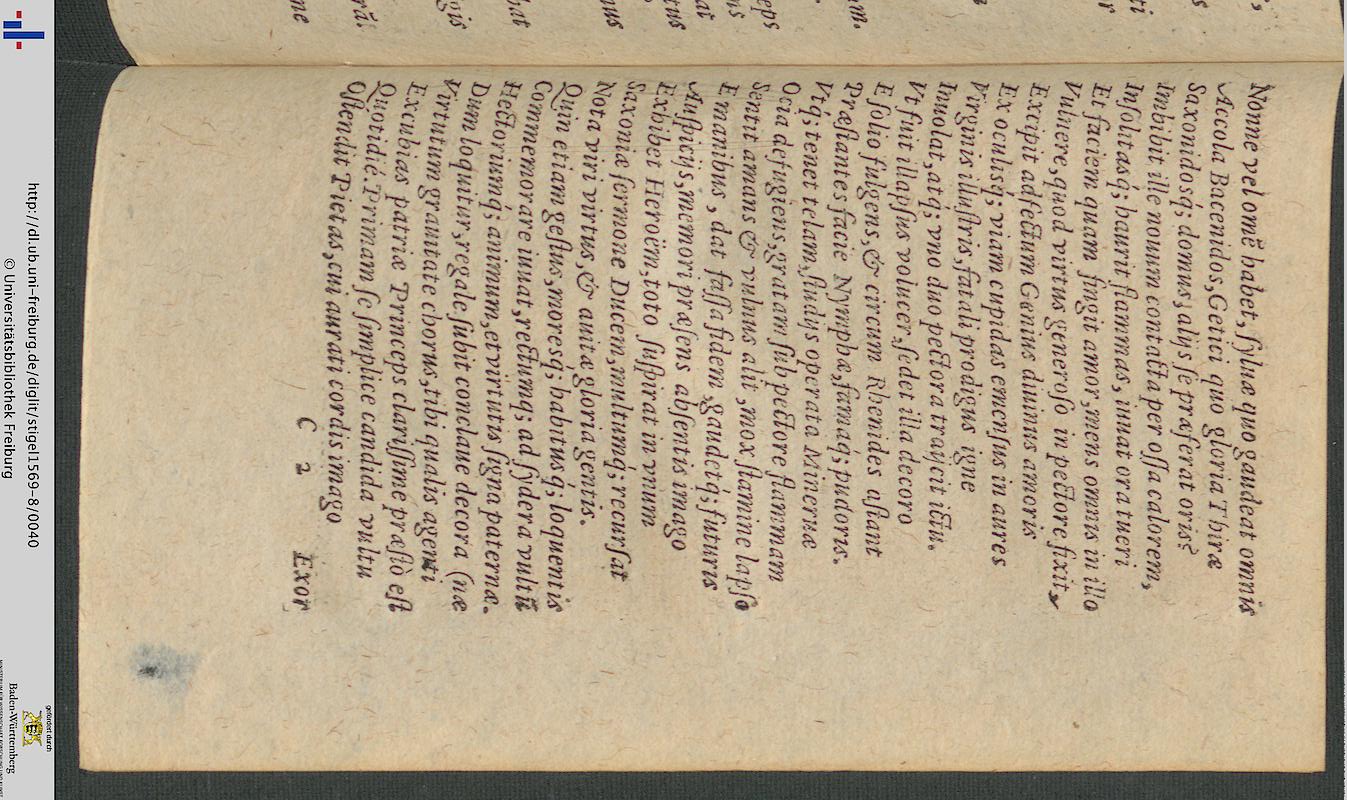 Nonne vel omē habet, ſyluæ quo gaudeat omnis
Accola Bacenidos, Getici quo gloria Thiræ
Saxonidosq́; domus, alijs ſe præferat oris?
Imbibit ille nouum contacta per oſſa calorem,
Inſolitasq́; haurit flammas, iuuat ora tueri
Et faciem quam fingit amor, mens omnis in illo
Vulnere, quod virtus generoſo in pectore fixit,
Excipit adfectum Genius diuinus amoris
Ex oculisq́; viam cupidas emenſus in aures
Virginis illuſtris, fatali prodigus igne
Inuolat, atq́; vno duo pectora traijcit ictu.
Vt fuit illapſus volucer, ſedet illa decoro
E ſolio fulgens, & circum Rhenides aſtant
Præſtantes facie Nymphæ, famaq́; pudoris.
Vtq́; tenet telam, ſtudijs operata Mineruæ
Ocia defugiens, gratam ſub pectore flammam
Sentit amans & vulnus alit, mox flamine lapſo
E manibus, dat faſſa fidem, gaudetq́; futuris
Auſpicijs, memori præſens abſentis imago
Exhibet Heroëm, toto ſuſpirat in vnum
Saxoniæ ſermone Ducem, multumq́; recurſat
Nota viri virtus, & auitæ gloria gentis.
Quin etiam geſtus, moresq́; habitusq́; loquentis
Commemorare iuuat, rectumq́; ad ſydera vultū
Hectoriumq́; animum, et virtutis ſigna paternæ.
Dum loquitur, regale ſubit conclaue decora (næ
Virtutum grauitate chorus, tibi qualis agenti
Excubias patriæ Princeps clariſſime præſtò eſt
Quotidiè. Primam ſe ſimplice candida vultu
Oſtendit Pietas, cui aurati cordis imago
C 2 Exor
http://dl.ub.uni-freiburg.de/diglit/stigel1569-8/0040
© Universitätsbibliothek Freiburg
gefördert durch
Baden-Württemberg